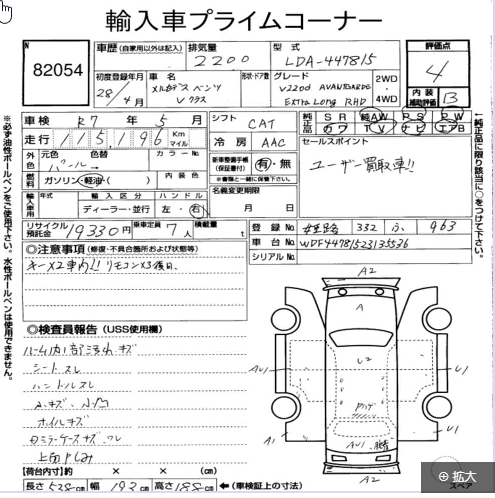 輸入車プライムコーナー
No 82054
車歴 (自家用以外は記入) 排気量 2200 型式 LDA-447815 評価点 4
初度登録年月 28/4月 車名 メルセデス ベンツ Vクラス 形状・ドア数 グレード V220d AVANTGARDE Extra Long RHD 2WD・4WD 内装補助評価 B
車検 R7年5月 シフト CAT 純正品 SR 純AW PS PW
走行 115,196 Km マイル 冷房 AAC カワ TV ナビ エアB
外色 元色 パール 色替 カラーNo. 新車整備手帳(保証書付) 有・無 セールスポイント
※書類と一緒に保管して下さい。 ユーザー買取車!!
燃料 ガソリン・軽油・( ) 内装色 名義変更期限
輸入車用 年式 輸入区分 ハンドル 月 日
ディーラー・並行 左・右
リサイクル預託金 19330円 乗車定員 7人 積載量 t 登録No. 姫路 332 ふ 963
車台No. WDF44781523135536
シリアルNo.
◎注意事項 (修復・不具合箇所および状態等)
キー×2車内!! リモコン×3後日、
◎検査員報告 (USS使用欄)
ルーム内1部汚れ、キズ
シートスレ
ハンドルスレ
小キズ・小凹
ホイルキズ
ドアミラーケースキズ ワレ
【荷台内寸】約 × × (cm)
長さ 538 cm 幅 193 cm 高さ 188 cm ←(車検証上の寸法)
※必ず油性ボールペンをご使用下さい。水性ボールペンは使用できません。
↑純正品に限り該当に○をつけて下さい。
A2
A
U2
AU1
U1
A1
AU1
U1
A2
スペア
拡大